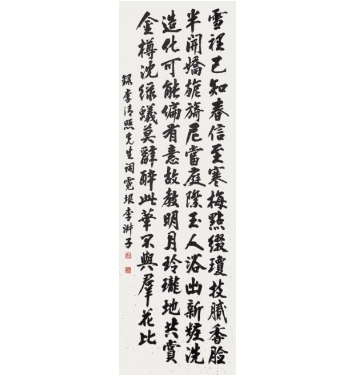 雪裡已知春信至寒梅點綴瓊枝膩香臉
半開嬌旖旎當庭際玉人浴出新妝洗
造化可能偏有意故教明月玲瓏地共賞
金樽沈綠蟻莫辭醉此華不與群花比
錄李清照先生词霓垠李澥子